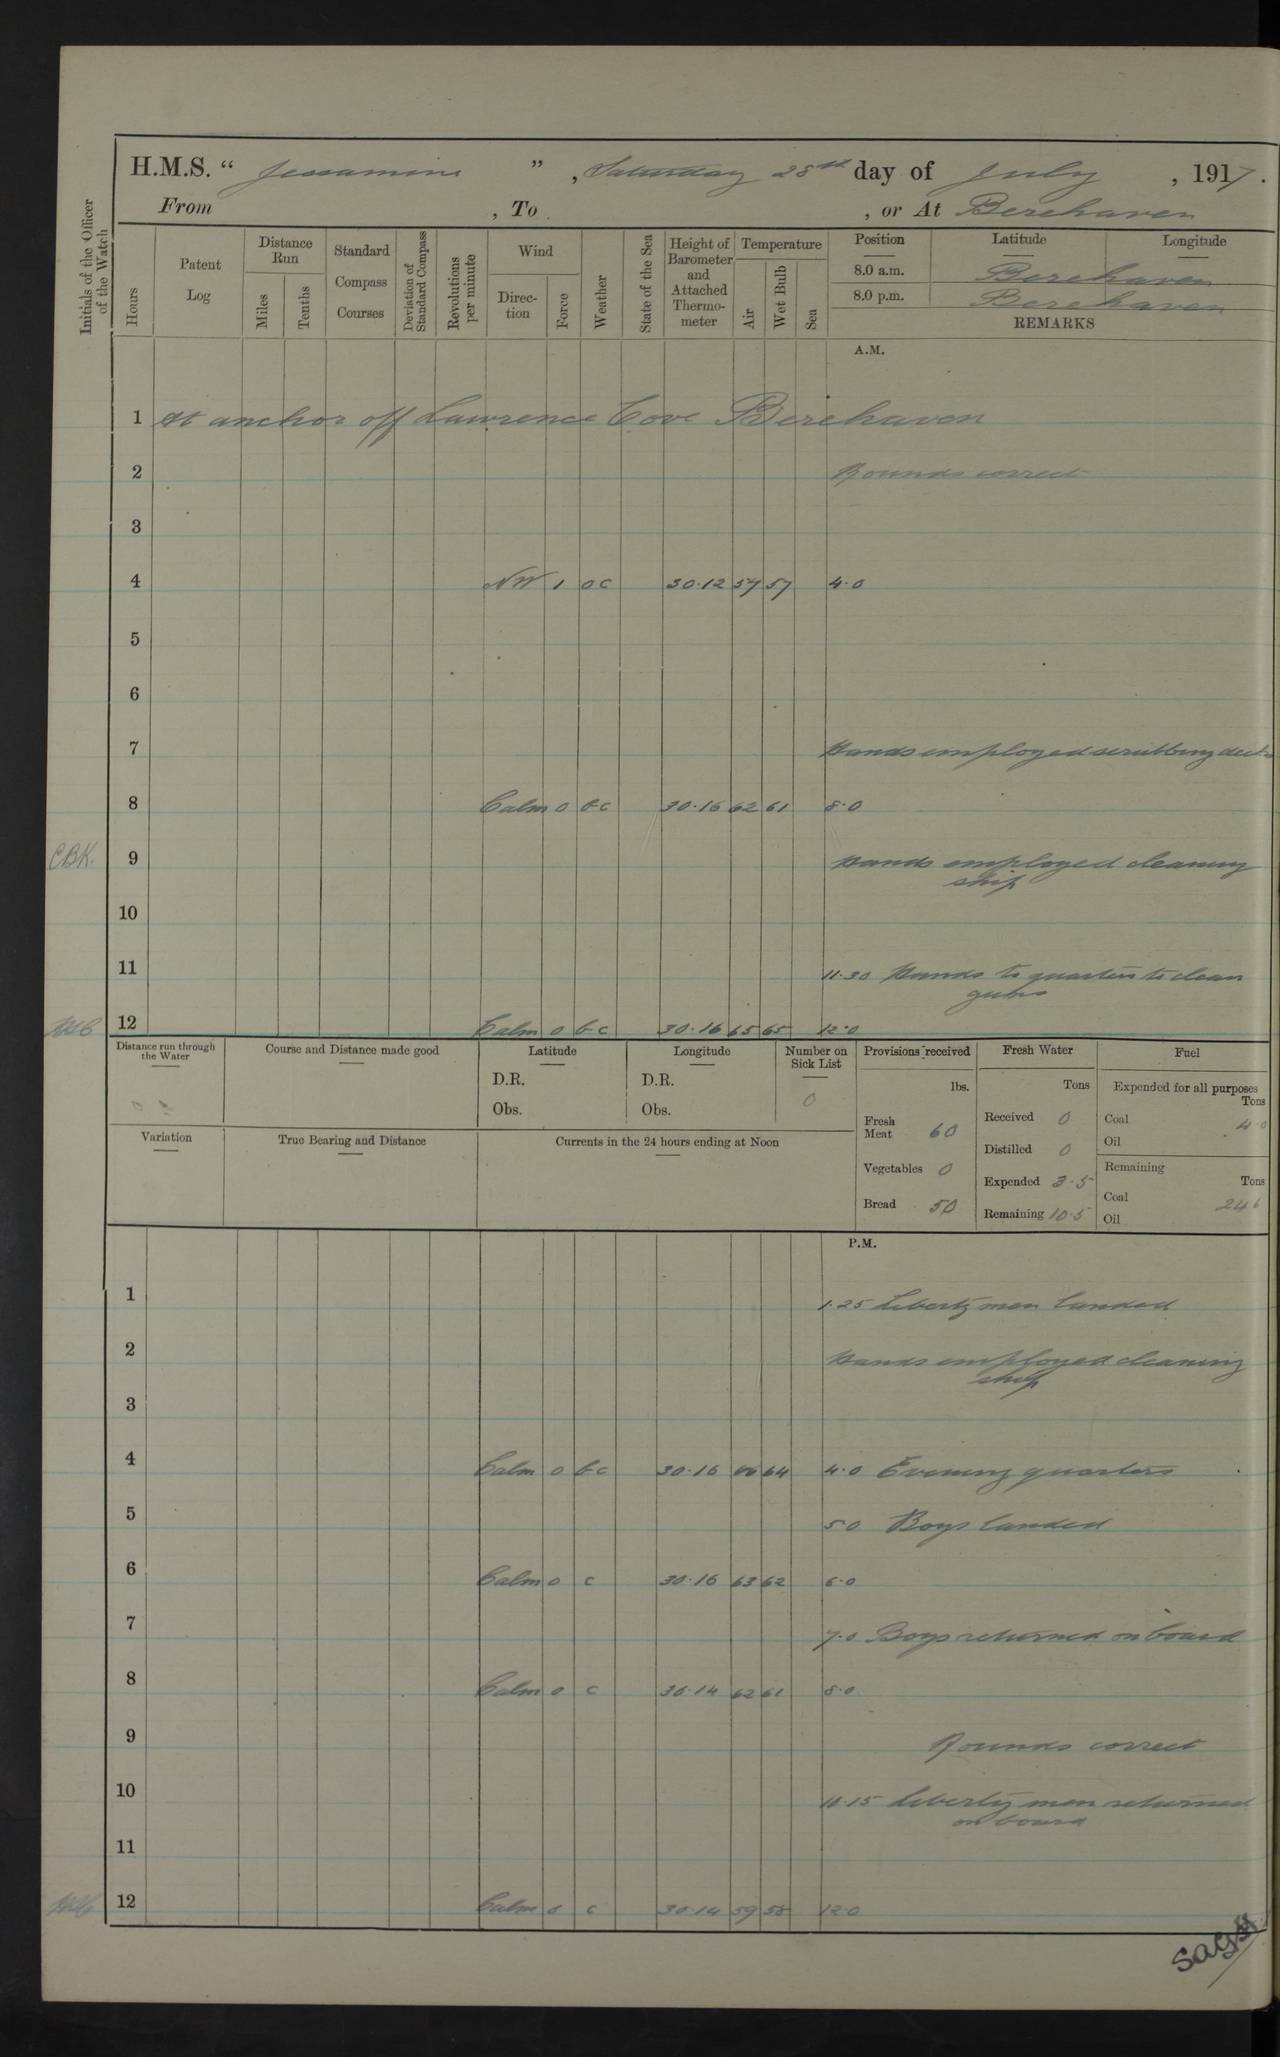 H.M.S. “ Jessamine ” , Saturday 28th day of July , 1917.
From , To , or At Berehaven
Initials of the Officer of the Watch
Hours
Patent Log
Distance Run
Miles
Tenths
Standard Compass Courses
Deviation of Standard Compass
Revolutions per minute
Wind
Direc-tion
Force
Weather
State of the Sea
Height of Barometer and Attached Thermo-meter
Temperature
Air
Wet Bulb
Sea
Position Latitude Longitude
8.0 a.m. Berehaven
8.0 p.m. Berehaven
REMARKS
A.M.
1 At anchor off Lawrence Cove Berehaven
2 Rounds correct
3
4 NW 1 oc 30.12 57 57 4.0
5
6
7 Hands employed scrubbing decks
8 Calm 0 bc 30.16 62 61 8.0
CBK. 9 Hands employed cleaning
ship
10
11 11.30 Hands to quarters to clean
guns
12 Calm 0 bc 30.16 65 65 12.0
Distance run through the Water
Course and Distance made good
Latitude
D.R.
Obs.
Longitude
D.R.
Obs.
Number on Sick List
0
Provisions received
lbs.
Fresh Meat 60
Vegetables 0
Bread 50
Fresh Water
Tons
Received 0
Distilled 0
Expended 3.5
Remaining 10.5
Fuel
Expended for all purposes
Tons
Coal 4.0
Oil
Remaining
Tons
Coal 246
Oil
Variation
True Bearing and Distance
Currents in the 24 hours ending at Noon
P.M.
1 1.25 Liberty men landed
2 Hands employed cleaning
ship
3
4 Calm 0 bc 30.16 66 64 4.0 Evening quarters
5 5.0 Boys landed
6 Calm 0 c 30.16 63 62 6.0
7 7.0 Boys returned on board
8 Calm 0 c 30.14 62 61 8.0
9 Rounds correct
10 10.15 Liberty men returned
on board
11
12 Calm 0 c 30.14 59 58 12.0